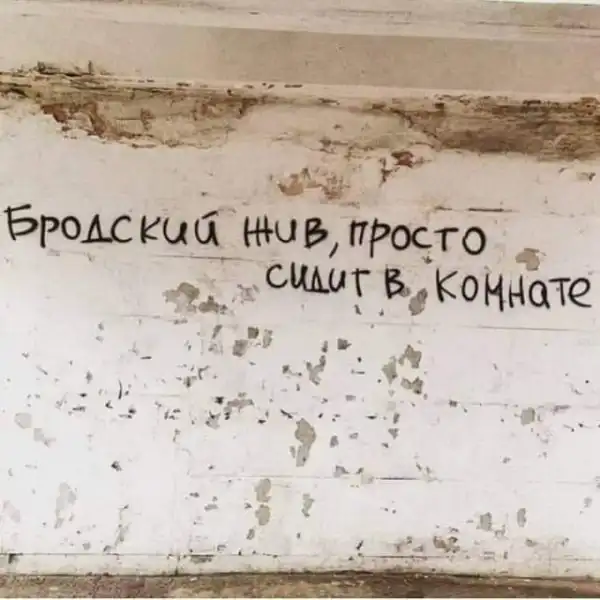 Бродский жив, просто
сидит в комнате